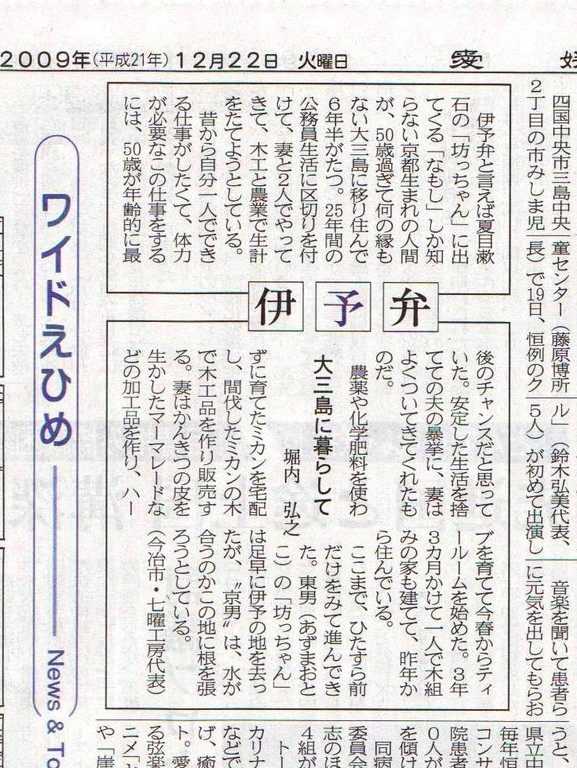 2009年(平成21年)12月22日 火曜日 愛
ワイドえひめ
News & To
伊予弁
大三島に暮らして
堀内 弘之
伊予弁と言えば夏目漱
石の「坊っちゃん」に出
てくる「なもし」しか知
らない京都生まれの人間
が、50歳過ぎて何の縁も
ない大三島に移り住んで
6年半がたつ。25年間の
公務員生活に区切りを付
けて、妻と2人でやって
きて、木工と農業で生計
をたてようとしている。
昔から自分一人ででき
る仕事がしたくて、体力
が必要なこの仕事をする
には、50歳が年齢的に最
後のチャンスだと思って
いた。安定した生活を捨
てての夫の暴挙に、妻は
よくついてきてくれたも
のだ。
農薬や化学肥料を使わ
ずに育てたミカンを宅配
し、間伐したミカンの木
で木工品を作り販売す
る。妻はかんきつの皮を
生かしたマーマレードな
どの加工品を作り、ハー
ブを育てて今春からティ
ールームを始めた。3年
3カ月かけて一人で木組
みの家も建てて、昨年か
ら住んでいる。
ここまで、ひたすら前
だけをみて進んできた
た。東男（あずまおと
こ）の「坊っちゃん」
は足早に伊予の地を去っ
たが、〝京男〟は、水が
合うのかこの地に根を張
ろうとしている。
（今治市・七曜工房代表）
四国中央市三島中央
2丁目の市みしま児
童センター（藤原博所
長）で19日、恒例のク
ル」（鈴木弘美代表、
5人）が初めて出演し
音楽を聞いて患者ら
に元気を出してもらお
うと、
県立中
毎年恒
コンサ
院患者
0人が
を傾け
同病
委員会
志のほ
4組が
トー
カリナ
などで
げ、癒
ト。愛
る弦楽
ニメ「と
や「崖